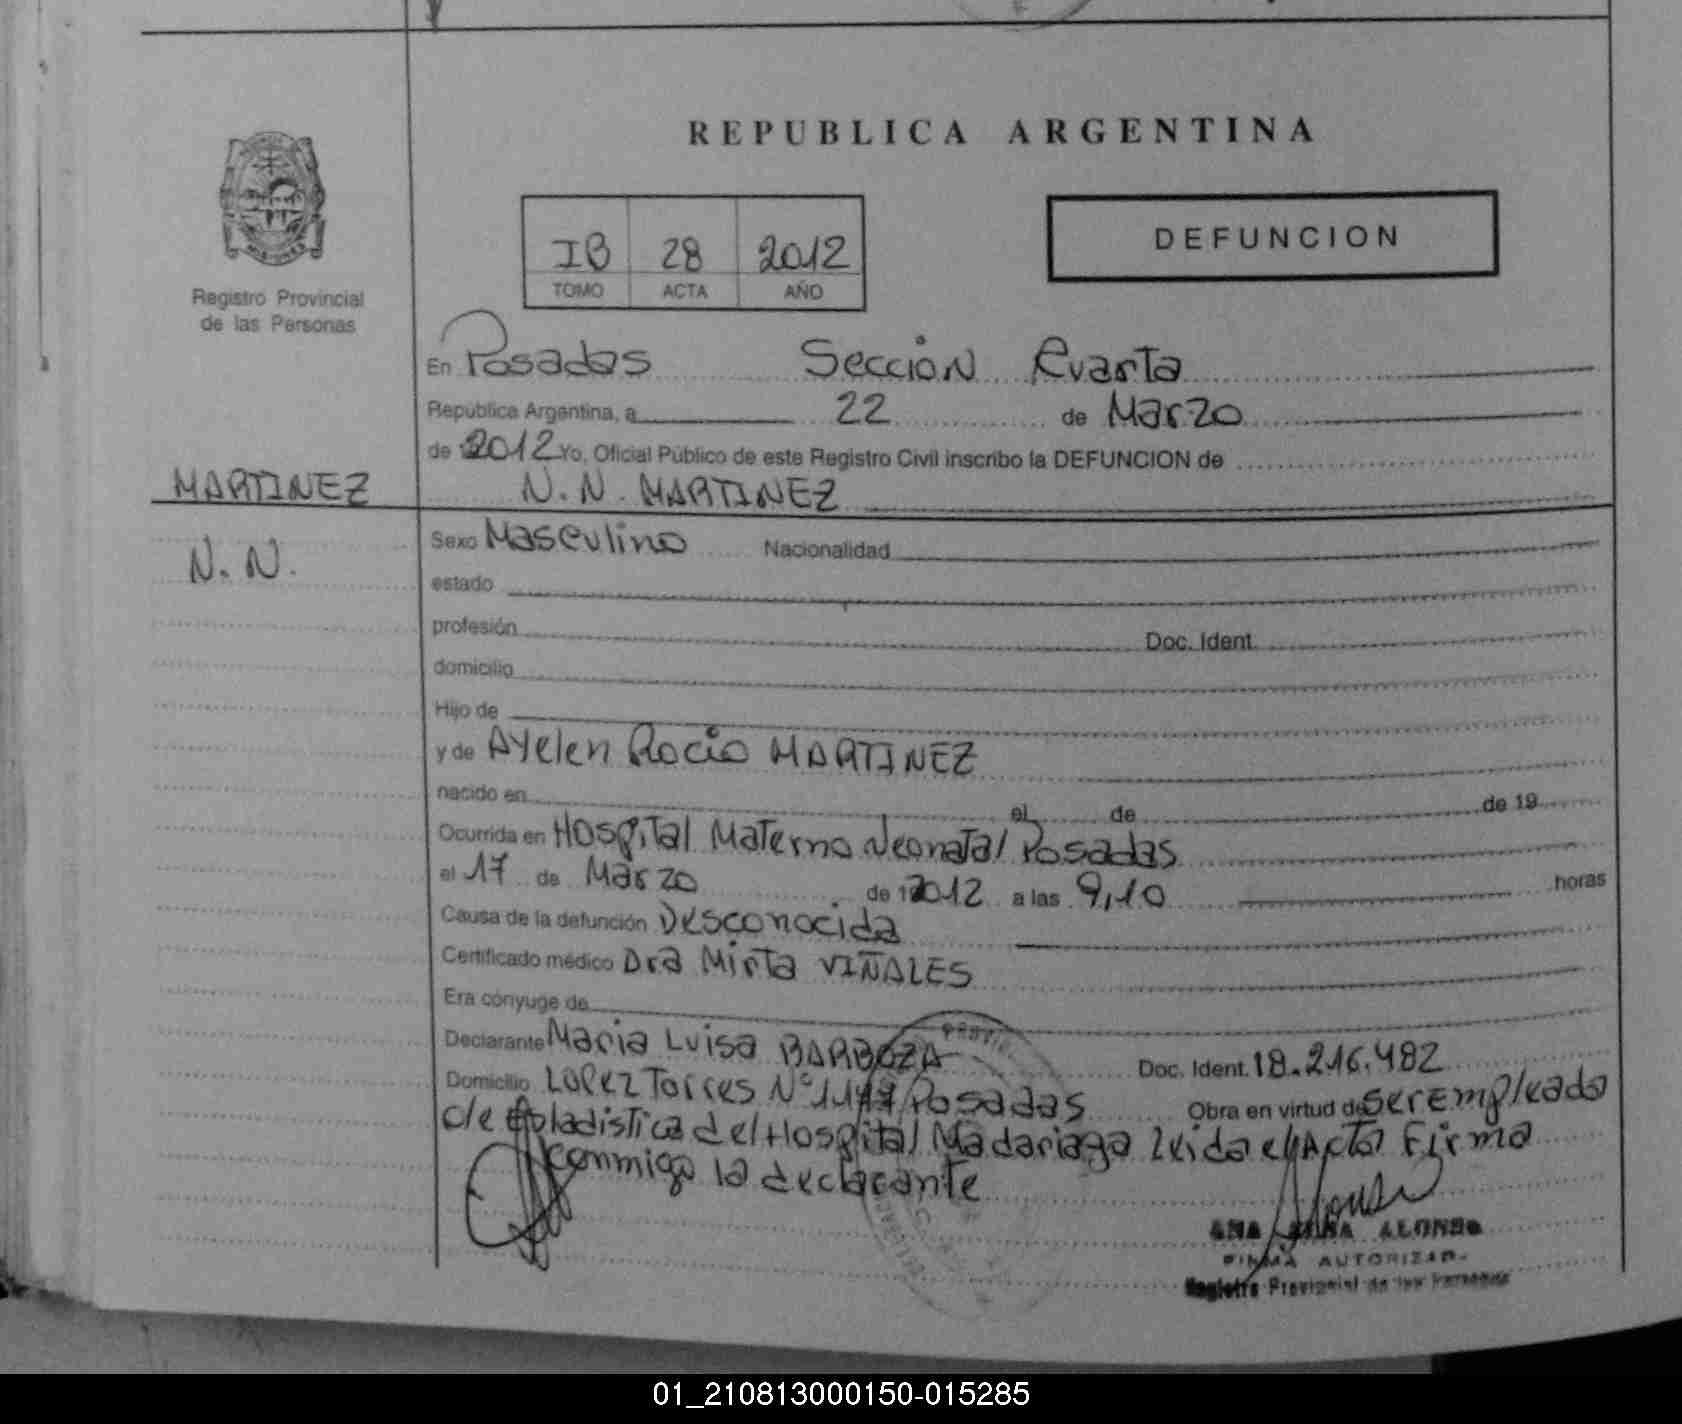 REPUBLICA ARGENTINA
IB 28 2012
TOMO ACTA AÑO
DEFUNCION
Registro Provincial
de las Personas
En Posadas Sección Cuarta
República Argentina, a 22 de Marzo
de 2012 Yo, Oficial Público de este Registro Civil inscribo la DEFUNCION de
MARTINEZ
N. N. MARTINEZ
N. N.
Sexo Masculino Nacionalidad
estado
profesión Doc. Ident.
domicilio
Hijo de
y de Ayelen Rocio MARTINEZ
nacido en el de de 19
Ocurrida en Hospital Materno Neonatal Posadas
el 17 de Marzo de 2012 a las 9,10 horas
Causa de la defunción Desconocida
Certificado médico Dra Mirta VIÑALES
Era cónyuge de
Declarante Maria Luisa BARBOZA Doc. Ident. 18.216.482
Domicilio Lopez Torres Nº Posadas Obra en virtud de ser Empleado
del Hospital Madariaga leida el Acta Firma
conmigo la declarante
ANA ALONSO
FIRMA AUTORIZAD
Registro Provincial de las Personas
01_210813000150-015285